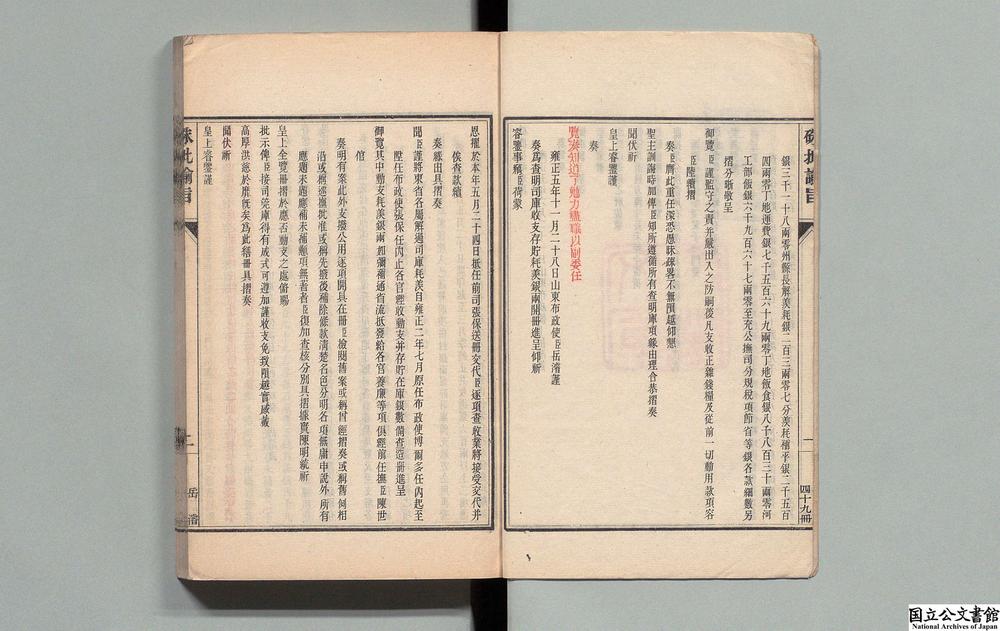 硃批諭旨
一
四十九冊
銀三千二十八兩零州縣長解羨耗銀二百三兩零七分羨耗積平銀二千五百
四兩零丁地運費銀七千五百六十九兩零丁地飯食銀八千八百三十兩零河
工部飯銀六千九百六十七兩零至充公撫司分規稅項節省等銀各款細數另
摺分晰敬呈
御覽臣謹監守之責并嚴出入之防嗣後凡支收正雜錢糧及從前一切動用款項容
臣陸續摺
奏臣膺此重任深恐愚昧疎畧不無隕越仰懇
聖主訓誨時加俾臣知所遵循所有查明庫項緣由理合恭摺奏
聞伏祈
皇上睿鑒謹
奏
覽奏知道了勉力盡職以副委任
雍正五年十一月二十八日山東布政使臣岳濬謹
奏爲查明司庫收支存貯耗羨銀兩開冊進呈仰祈
睿鑒事竊臣荷蒙
恩擢於本年五月二十四日抵任前司張保送冊交代臣逐項查收業將接受交代并
俟查款續
奏緣由具摺奏
聞臣謹將東省各屬解過司庫耗羨自雍正二年七月原任布政使博爾多任內起至
陞任布政使張保任內止各官經收動支并存貯在庫銀數備查造冊進呈
御覽其中動支耗羨銀兩如彌補通省流抵發給各官養廉等項俱經前任撫臣陳世
倌
奏明有案此外支撥公用逐項開具在冊臣檢閱舊案或稱曾經摺奏或稱舊例相
沿或稱巡撫批准或稱先撥後補除條款清楚名色分明各項無庸申說外所有
應題未題應補未補顯項無着者臣復加查核分別具摺據實陳明統祈
皇上全覽冊摺於應否動支之處俯賜
批示俾臣接司筦庫得有成式可遵加謹收支免致隕越實感戴
高厚洪慈於靡旣矣爲此繕冊具摺奏
聞伏祈
皇上睿鑒謹
硃批諭旨
二
岳濬
国立公文書館
National Archives of Japan